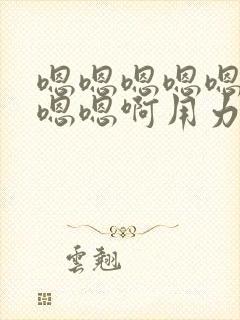 嗯嗯嗯嗯嗯
嗯嗯啊用力
雲翹